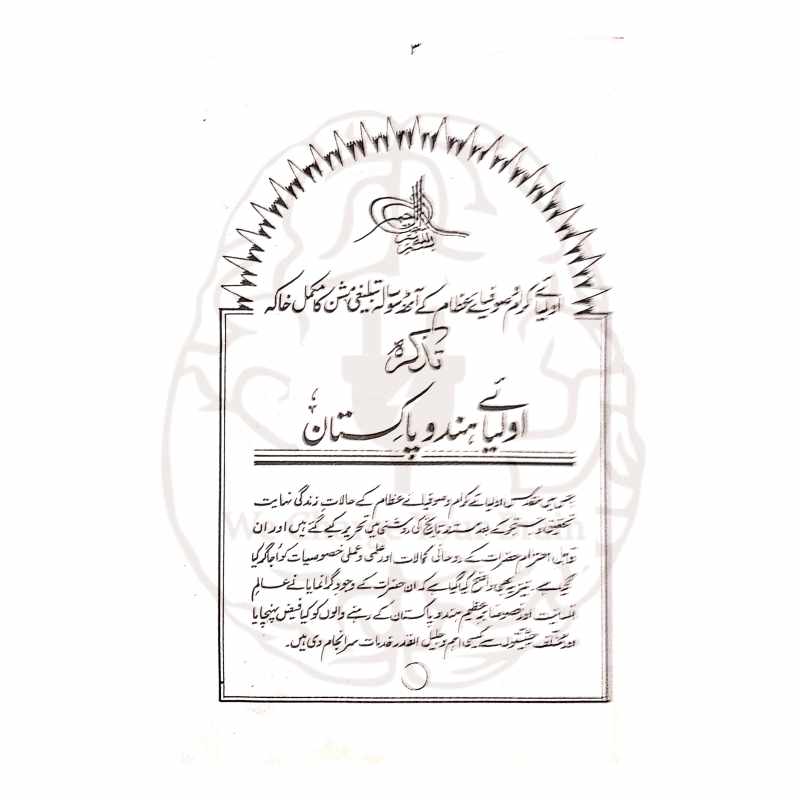 ۳
بسم اللہ الرحمن الرحیم
اولیائے کرام و صوفیائے عظام کے آٹھ سو سالہ تبلیغی مشن کا مکمل خاکہ
تذکرہ
اولیائے ہند و پاکستان
جس میں مقدس اولیائے کرام و صوفیائے عظام کے حالات زندگی نہایت
تحقیق و جستجو کے بعد مستند تاریخ کی روشنی میں تحریر کیے گئے ہیں اور ان
قابل احترام حضرات کے روحانی کمالات اور علمی و عملی خصوصیات کو اجاگر کیا
گیا ہے۔ نیز یہ بھی واضح کیا گیا ہے کہ ان حضرات کے وجود گرانمایا نے عالم
انسانیت اور خصوصاً برعظیم ہند و پاکستان کے رہنے والوں کو کیا فیض پہنچایا
اور مختلف حیثیتوں سے کیسی اہم و جلیل القدر خدمات سر انجام دی ہیں۔